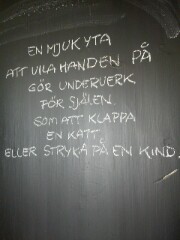 EN MJUK YTA
ATT VILA HANDEN PÅ
GÖR UNDERVERK
FÖR SJÄLEN
SOM ATT KLAPPA
EN KATT.
ELLER STRYKA PÅ EN KIND.